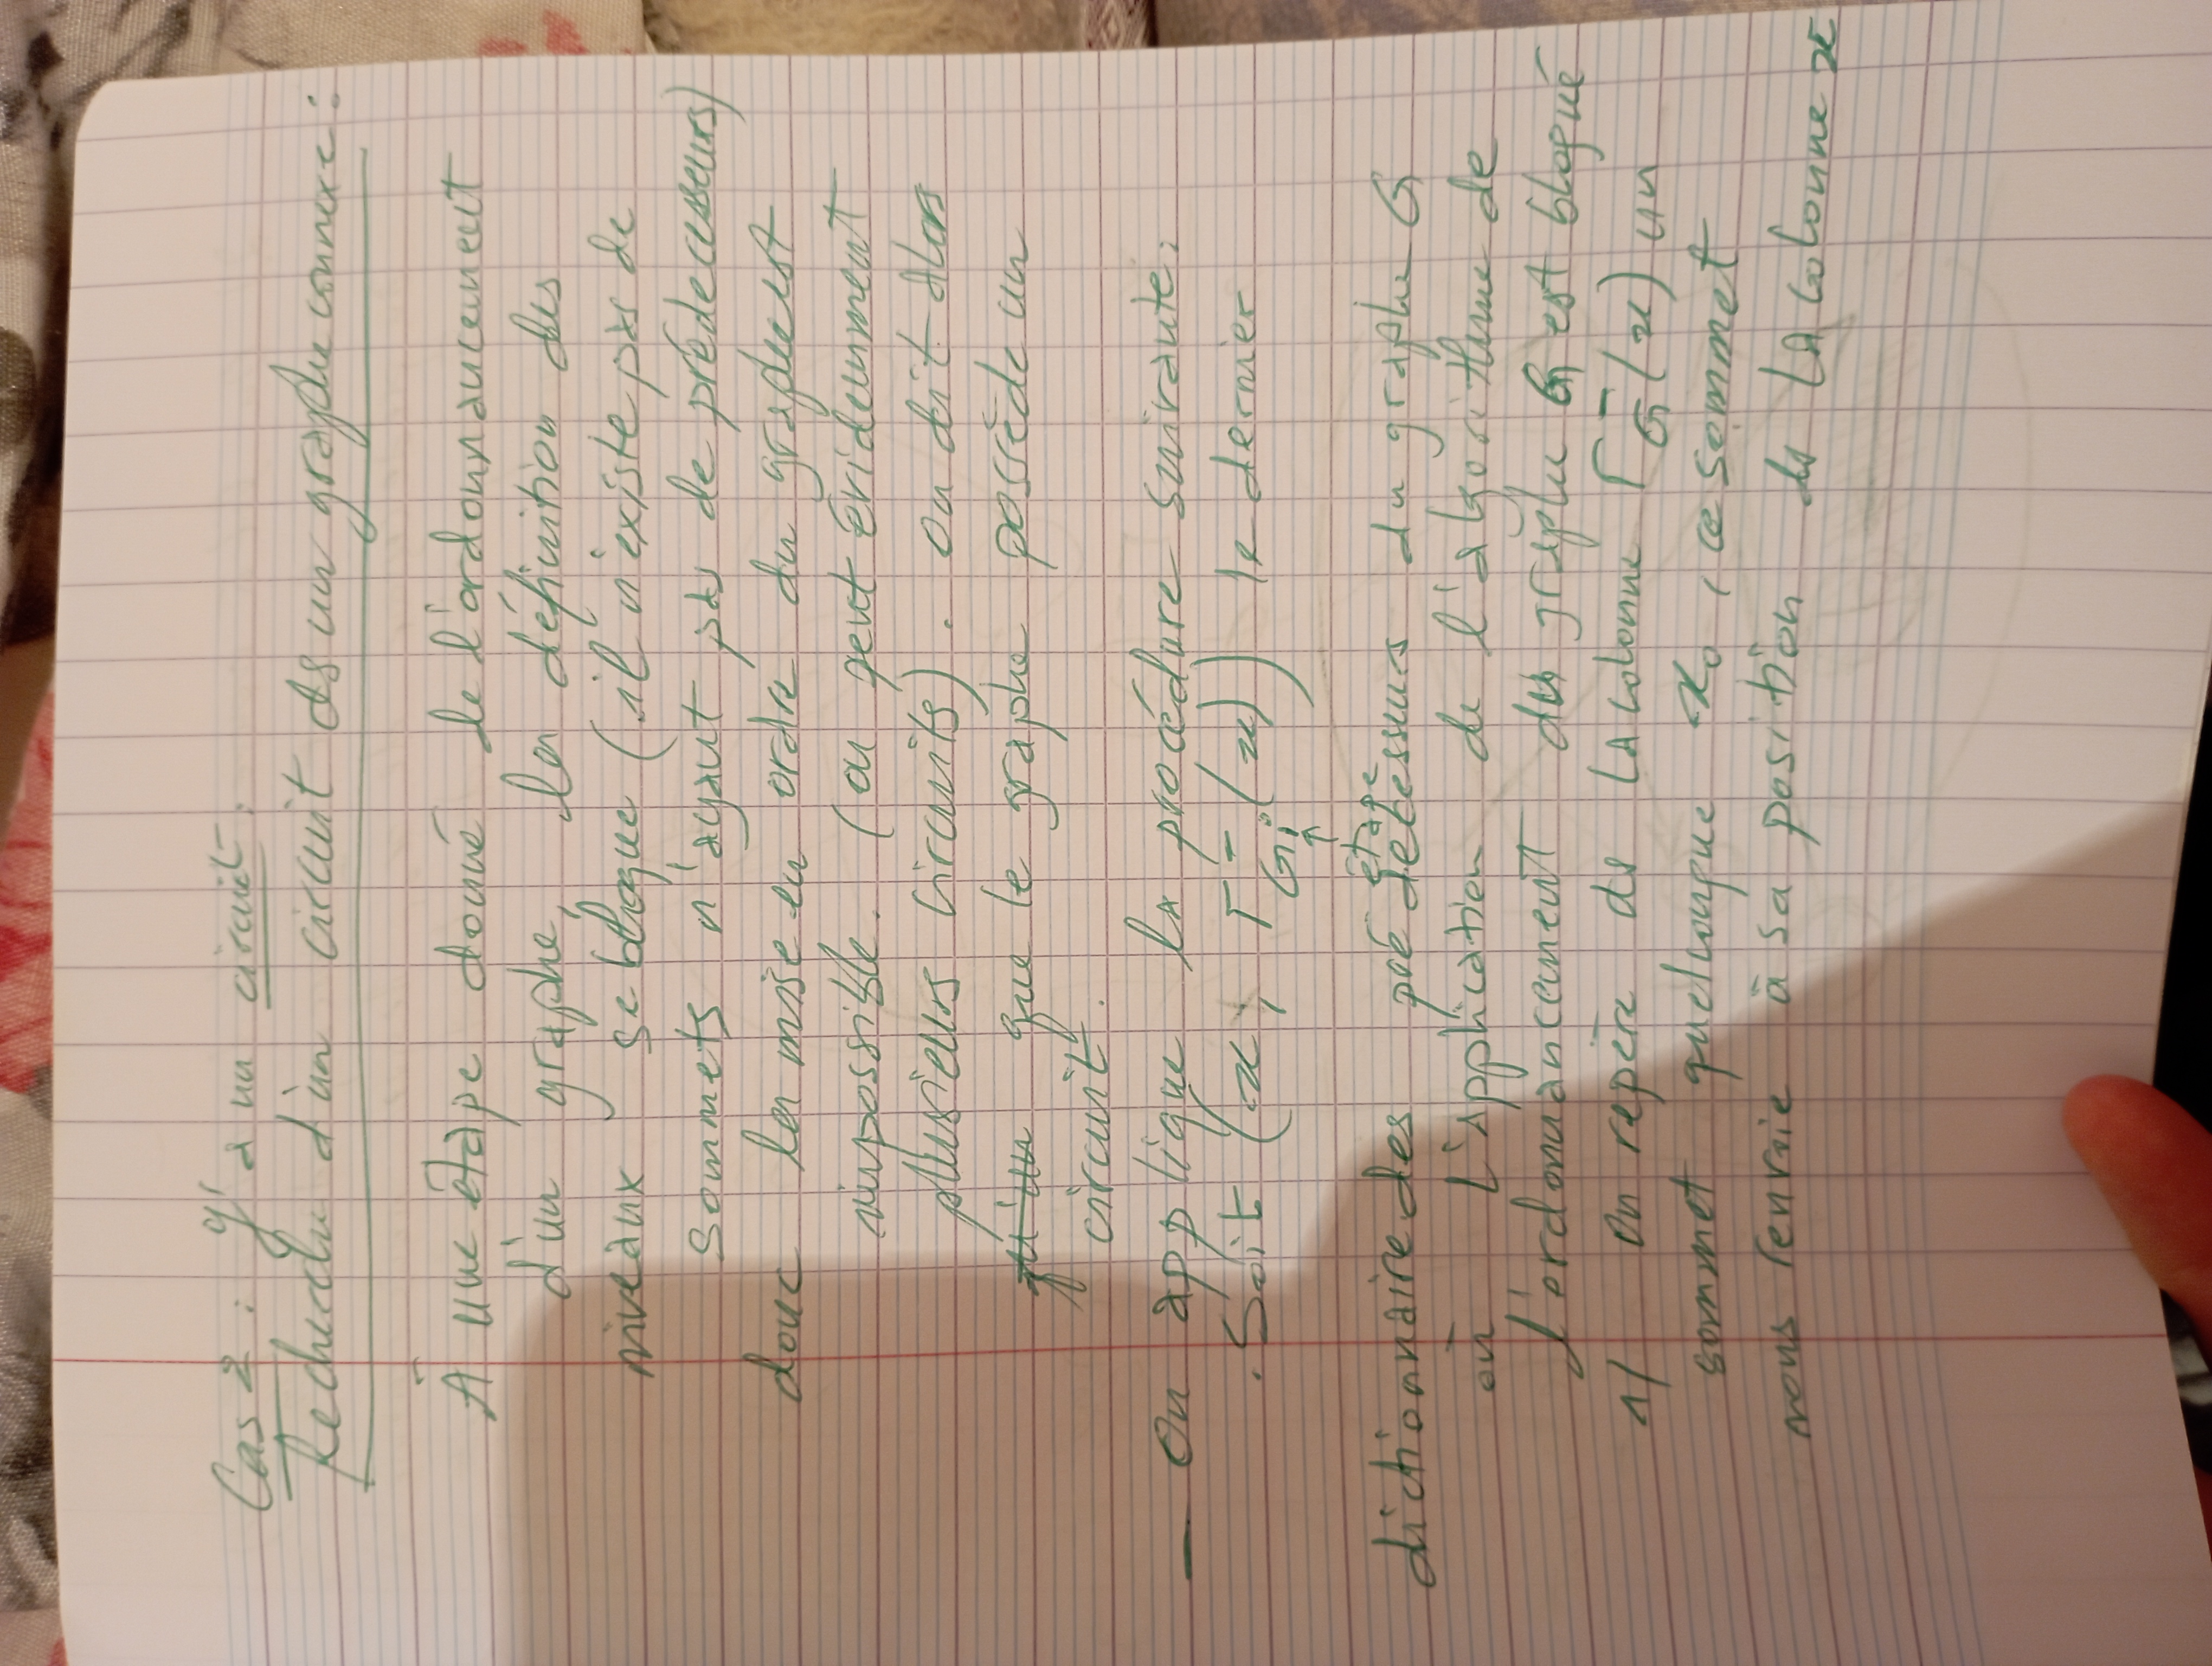 Cas 2 : Y'a un circuit.
Recherche d'un circuit ds un graphe connexe :
À une étape donné de l'ordonnancement
d'un graphe, la définition des
niveaux se bloque (il n'existe pas de
sommets n'ayant pas de prédecesseurs)
donc la mise en ordre du graphe est
impossible. (on peut évidemment
plusieurs circuits). On dit alors
qu'un que le graphe possède un
circuit.
— On applique la procédure suivante :
. Soit (x, Γ⁻Gi(x)) le dernier
↑
étape
dictionnaire des prédécesseurs du graphe G
où l'application de l'algorithme de
l'ordonnancement du graphe G est bloqué
1/ On repère ds la colonne Γ⁻G(x) un
sommet quelconque x₀, ce sommet
nous renvoie à sa position ds la colonne x